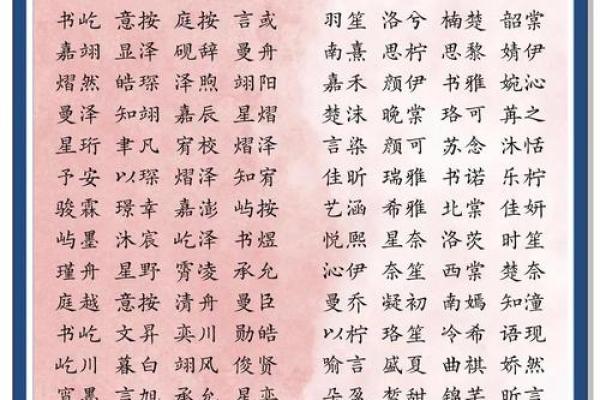 书屹 意按 庭按 言或 羽笙 洛兮 楠楚 韶棠
嘉翊 显泽 砚辞 曼舟 南熹 思柠 思黎 婧伊
熠然 皓琛 泽煦 翊阳 嘉禾 颜伊 书雅 婉沁
曼泽 知翊 嘉辰 星熠 楚沫 晚棠 珞可 苒之
星珩 聿凡 宥校 熠泽 言染 颜可 苏念 沐恬
予安 以琛 熠泽 知宥 佳昕 瑞雅 书诺 乐柠
骏霖 璟幸 嘉澎 屿按 艺涵 希雅 北棠 佳妍
屿墨 沐宸 屹泽 书煜 悦熙 星奈 洛茨 时笙
瑾舟 星野 霄凌 承允 沁伊 奈笙 西棠 楚奈
庭越 意按 清舟 曼臣 曼乔 凝初 南嫣 知潼
书屹 文昇 奕川 勋皓 以柠 珞笙 冷希 语现
屹川 暮白 翊风 俊贤 喻言 盛夏 曲祺 娇然
宵墨 言旭 承允 星奕 朵盈 皙甜 锦芊 昕言